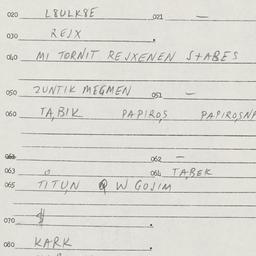 020 LQULKQE 021 —
030 REJX
040 MI TORNIT REJXENEN STABES
050 ZUNTIK MEGMEN 051 —
060 TA,BIK PAPIROS PAPIROSN
061 062 —
063 064 TABEK
065 TITUN W GOJIM
070
080 KARK